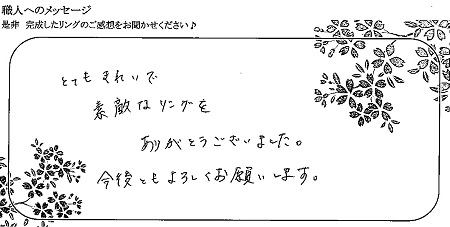 職人へのメッセージ
是非 完成したリングのご感想をお聞かせください♪
とてもきれいで
素敵なリングを
ありがとうございました。
今後ともよろしくお願いします。